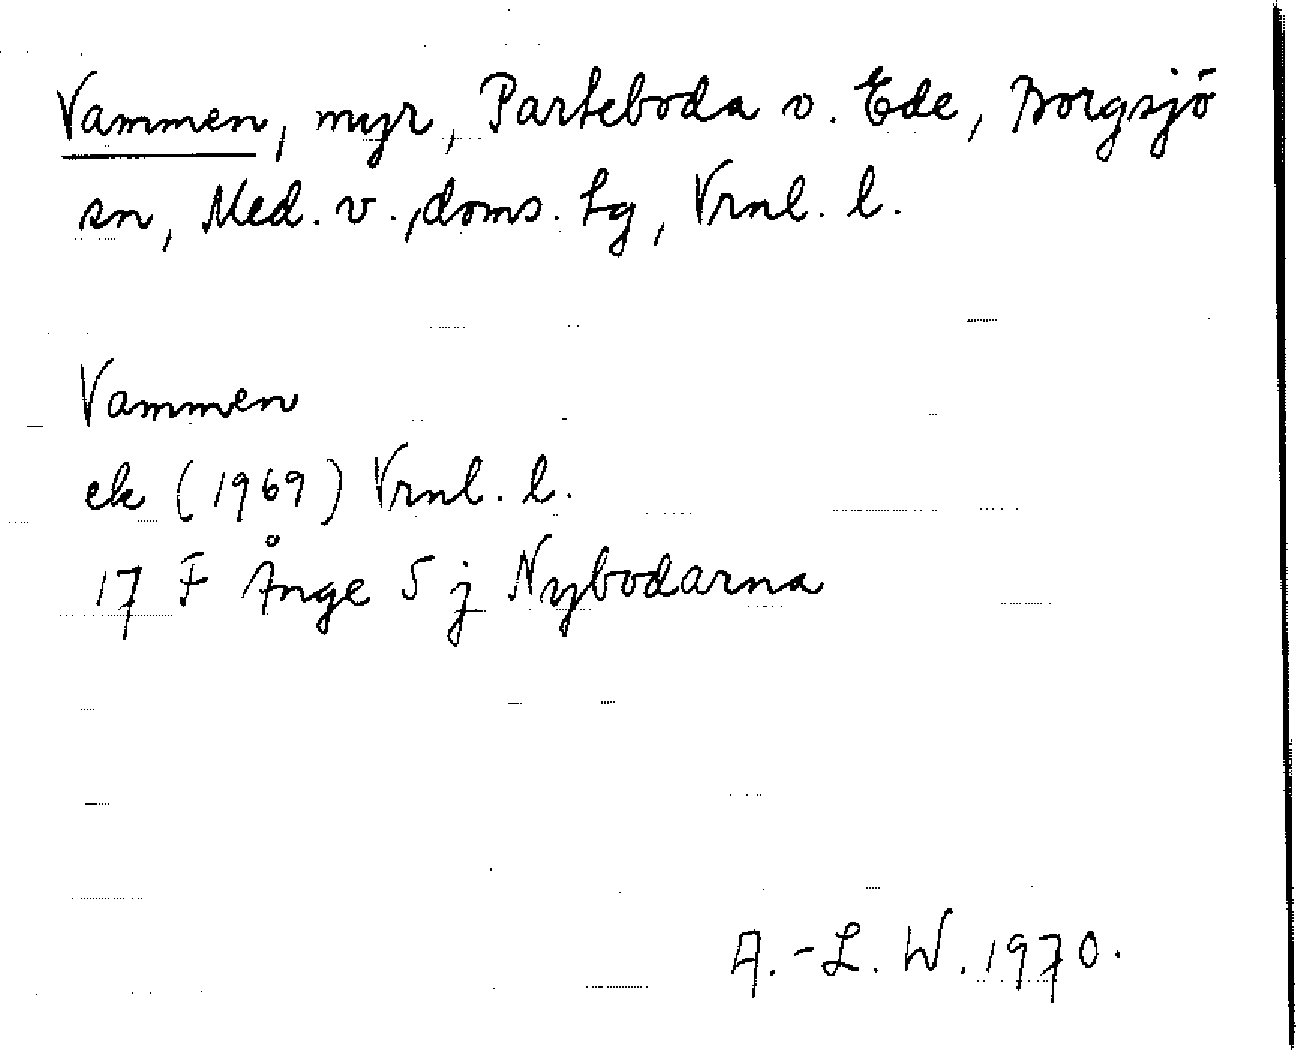 Vammen, myr, Parteboda o. Ede, Borgsjö
sn, Med. v., doms. hg, Vrnl. l.
Vammen
ek (1969) Vrnl. l.
17 F Ånge 5 j Nybodarna
A.-L. W. 1970.